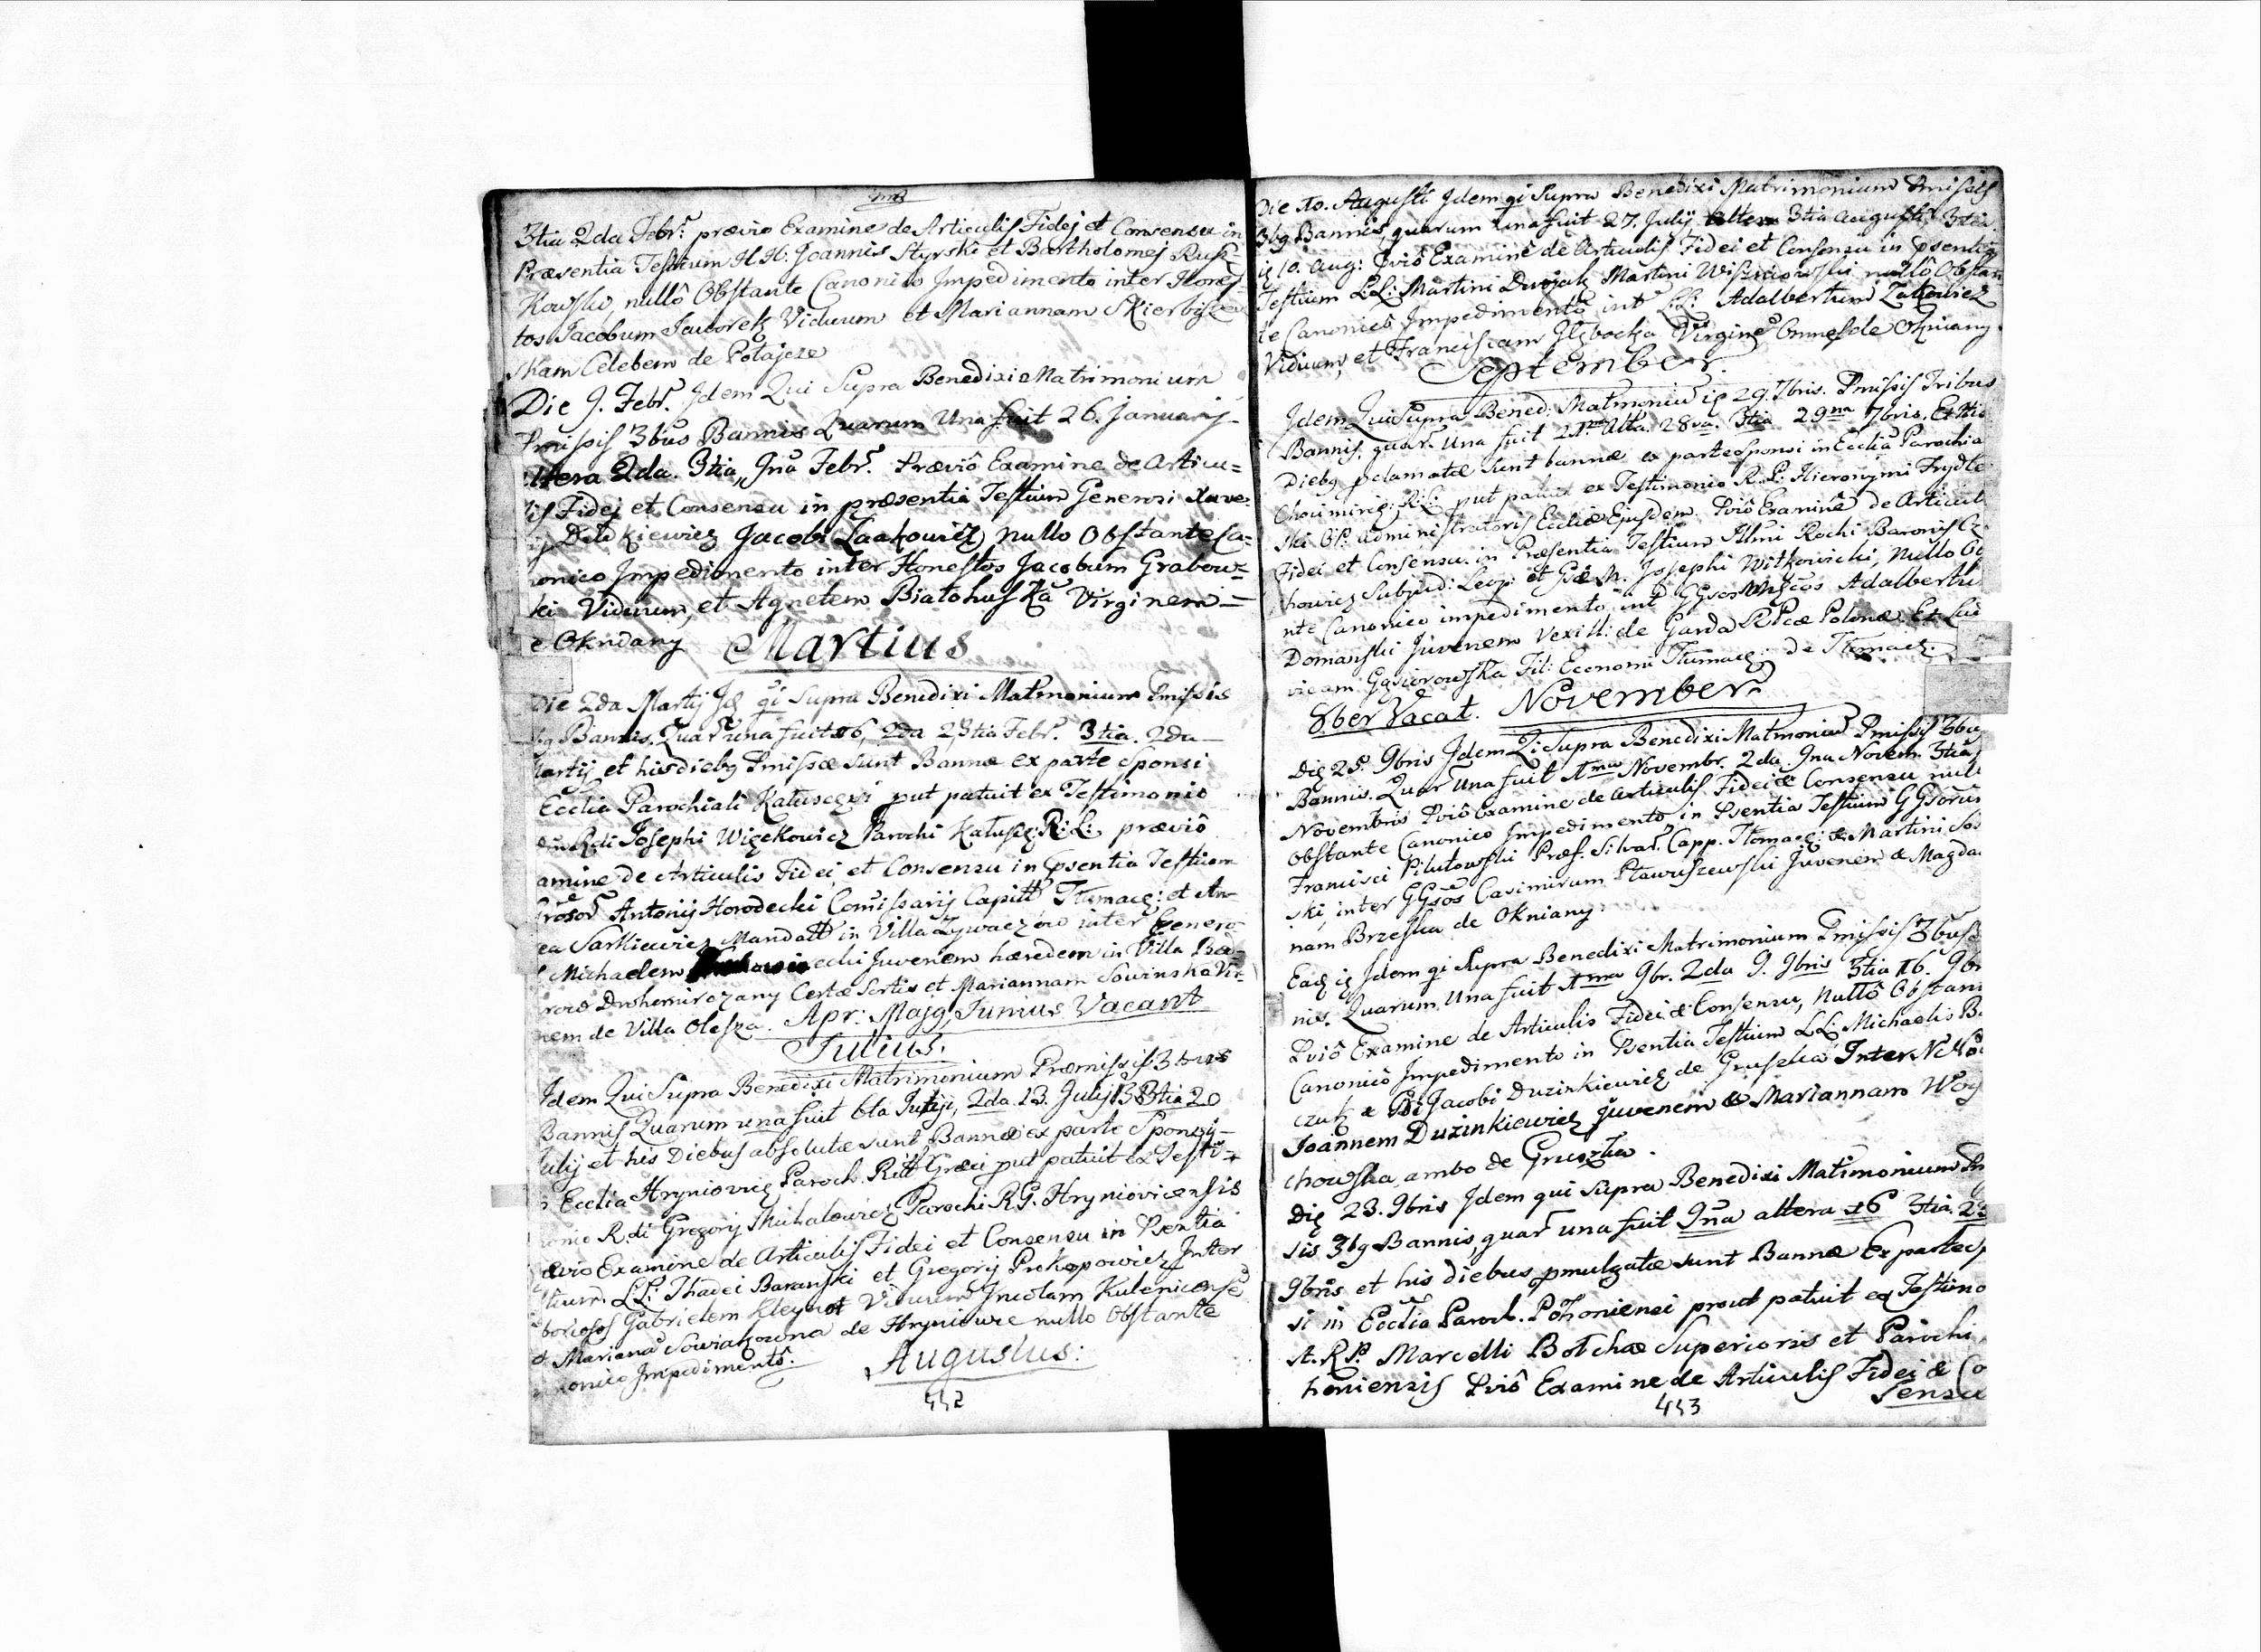 3tia 2da Febr. prævio Examine de Articulis Fidej et Consensu in
Præsentia Testium HH: Joannis Styrski et Bartholomej Rus-
kowski, nullô Obstante Canonico Impedimento inter Hones
tos Jacobum Jaworek Viduum et Mariannam Skierbisze
skam Celebem de Potajcze
Die 9. Febr. Jdem Qui Supra Benedixi Matrimonium
Pmissis 3bus Bannis Quarum Una fuit 26. Januarij
ltera 2da. 3tia, 9na Febr. Præviô Examine de Articu=
lis Fidej et Consensu in præsentia Testium Generosi Xave
kiewicz Jacobi Zaakowicz nullo Obstante Ca=
nonico Impedimento inter Honestos Jacobum Grabow=
ki Viduum, et Agnetem Białohuską Virginem =
e Okndany Martius
Die 2da Martij Jd qi Supra Benedixi Matmonium Pmissis
bq Bannis. Quar una fuit 16, 2da 23tia Febr. 3tia. 2da
Martij et his diebq Pmissæ sunt Bannæ ex parte Sponsi
Ecclia Parochiali Katuscen put patuit ex Testimonio
Rdi Josephi Więckowicz Parochi Kałusz: R: L: præviô
amine de Articulis Fidei et Consensu in Psentia Testium
Antonij Horodecki Comissarij Capitl Tłumacz: et An-
ea Sarkiewicz Mandatt in Villa Zywaczow inter Genero
Michaelem ecki Juvenem hæredem in Villa
Drohemirczany Certæ Sortis et Mariannam Sowinska Vir
nem de Villa Olesza. Apr: Majq, Junius Vacant
Julius.
Jdem Qui Supra Benedixi Matrimonium Præmissis 3bus
Bannis Quarum una fuit 6ta Julij, 2da. 13. Julij 3tia 20
ulij et his Diebus absolutæ sunt Bannæ ex parte Sponsi
Ecclia Hryniovicz Paroch. Ritt Græci put patuit ex Testi
onio Rdi Gregorij Michałowicz Parochi RG. Hryniovicensis
ævio Examine de Articulis Fidei et Consensu in Psentia
tium LL: Thadei Baranski et Gregorij Prokopowicz Inter
boriosos Gabrielem Kleynot Viduum Incolam Kulenicense
et Marianâ Sowiakowna de Hryniowce nullo Obstante
nonico Impedimentô. Augustus:
442
Die 10. Augusti Jdem qi Supra Benedixi Matrimonium Pmissis
3bq Bannis, quarum una fuit 27. Julij altera 3tia Augusti, 3tia
10. Aug: Pviô Examine de Articulis Fidei et Consensu in Psentia
Testium LL: Martini Duojak Martini Wiszniowski nullô Obstan
te Canonicô Impedimentô int LL: Adalbertum Zakowicz
Viduum, et Franciscam Virginê Omnes de Okniany
September.
Jdem Qui Supra Bened: Matmoniû 29. 7bris. Pmissis Tribus
Bannis, quar. Una fuit 21ma Alta. 28va. 3tia 29na 7bris. Et his
Diebq pclamatæ sunt bannæ ex parte sponsi in Ecclia Parochia
Chocimirz: R:L: put patuit ex Testimonio R.P. Hieronymi Frydte
ski administratoris Eccliæ Ejusdem. Pviô Examinê de Articul
Fidei et Consensu. in Præsentia Testium Illmi Rochi Baronis
howicz Subjud: Leop: et M. Josephi Witkowicki, Nullo
nte Canonico impedimento int Adalbertu
Domanski Juvenem Vexill: de Garda RPcæ Polonæ Et Lu
vicam Gąsiorowska Fil: Economi Tłumacz: de Tłmacz.
8ber Vacat. November
Die 25. 9bris Jdem Qi Supra Benedixi Matmoniû Pmissis 3bu
Bannis. Quar Una fuit 1ma Novembr. 2da 9na Novem. 3tia
Novembris Pviô Examine de Articulis Fidei & Consensu null
Obstante Canonico Impedimento, in Psentia Testium GGsorum
Francisci Pilutowski Præf. Silvar. Capp. Tłomacz: & Martini Sos
ski, inter GGsos Casimirum Pławuszewski Juvenem & Magda
nam Brzeska de Okniany.
Ead Jdem qi Supra Benedixi Matrimonium Pmissis 3bus
nis. Quarum Una fuit 1ma 9br. 2da 9. 9bris 3tia 16. 9b
Pviô Examine de Articulis Fidei & Consensu, Nullô Obstan
Canonicô Impedimento in Psentia Testium LL: Michaelis B
czuk & Jacobi Duzinkiewicz de Gruszka Inter
Joannem Duzinkiewicz Juvenem & Mariannam Woy
chowska, ambo de Gruszka.
Die 23. 9bris Jdem qui Supra Benedixi Matimonium
sis 3bq Bannis, quar una fuit 9na altera 16 3tia. 23
9bris et his diebus pmulgatæ sunt Bannæ Ex parte sp
si in Ecclia Paroch. Pohonienci prout patuit eq Testimo
A. R.P. Marcelli Botchæ Superioris et Parochi
honiensis Pviô Examine de Articulis Fidei & Co
Sensu
443